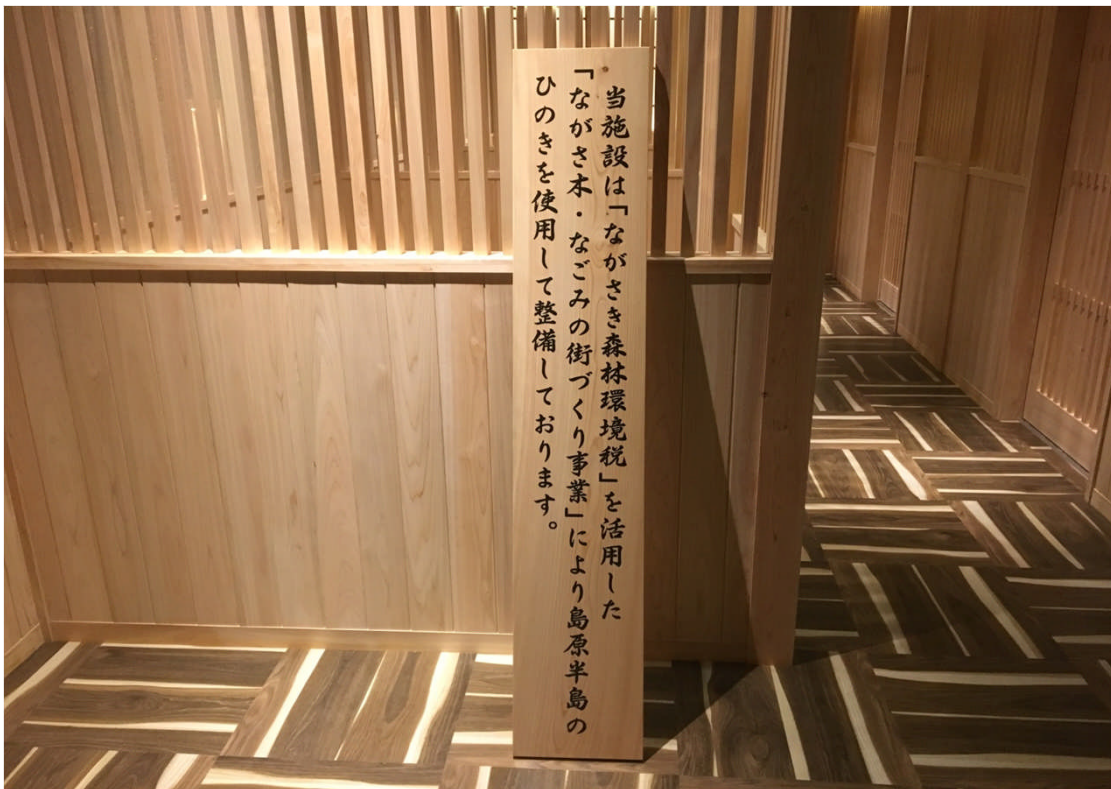 当施設は「ながさき森林環境税」を活用した
「ながさ木・なごみの街づくり事業」により島原半島の
ひのきを使用して整備しております。